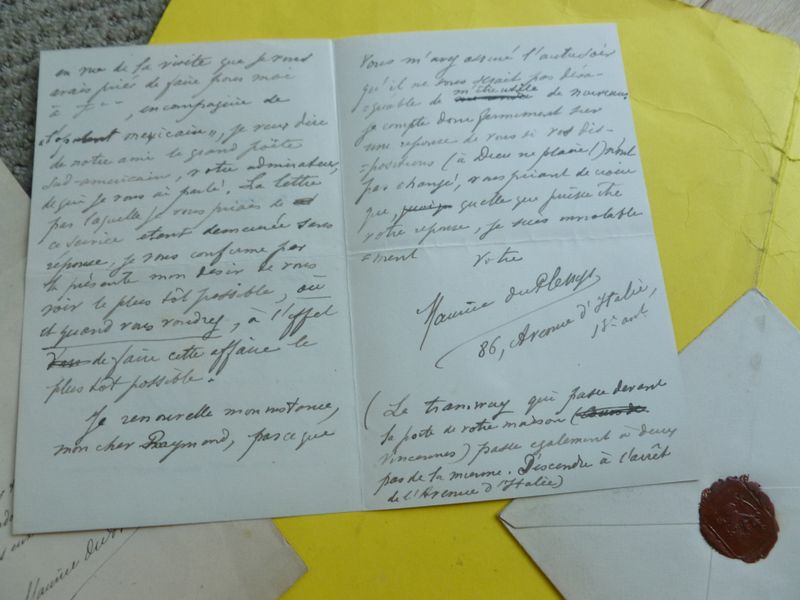 en vue de la visite que je vous
avais priés de faire pour moi
à F--, en compagnie de
mexicain », je veux dire
de notre ami le grand poëte
sud-americain, votre admirateur,
de qui je vous ai parlé. La lettre
par laquelle je vous priais de
ce service étant demeurée sans
réponse, je vous confirme par
la présente mon désir de vous
voir le plus tôt possible, où
et quand vous voudrez, à l'effet
de faire cette affaire le
plus tôt possible.
Je renouvelle mon instance,
mon cher Raymond, parce que
Vous m'avez assuré l'autre soir
qu'il ne vous serait pas désa-
=gréable de m'être utile de nouveau.
je compte donc fermement sur
une réponse de vous si vos dis-
=positions (à Dieu ne plaise!) n'ont
pas changé, vous priant de croire
que, quelle que puisse être
votre réponse, je suis inviolable
=ment Votre
Maurice du Plessys
86, Avenue d'Italie,
13e arrt
(Le tramway qui passe devant
la porte de votre maison (Cours de
Vincennes) passe également à deux
pas de la mienne. Descendre à l'arrêt
de l'Avenue d'Italie)
Maurice du